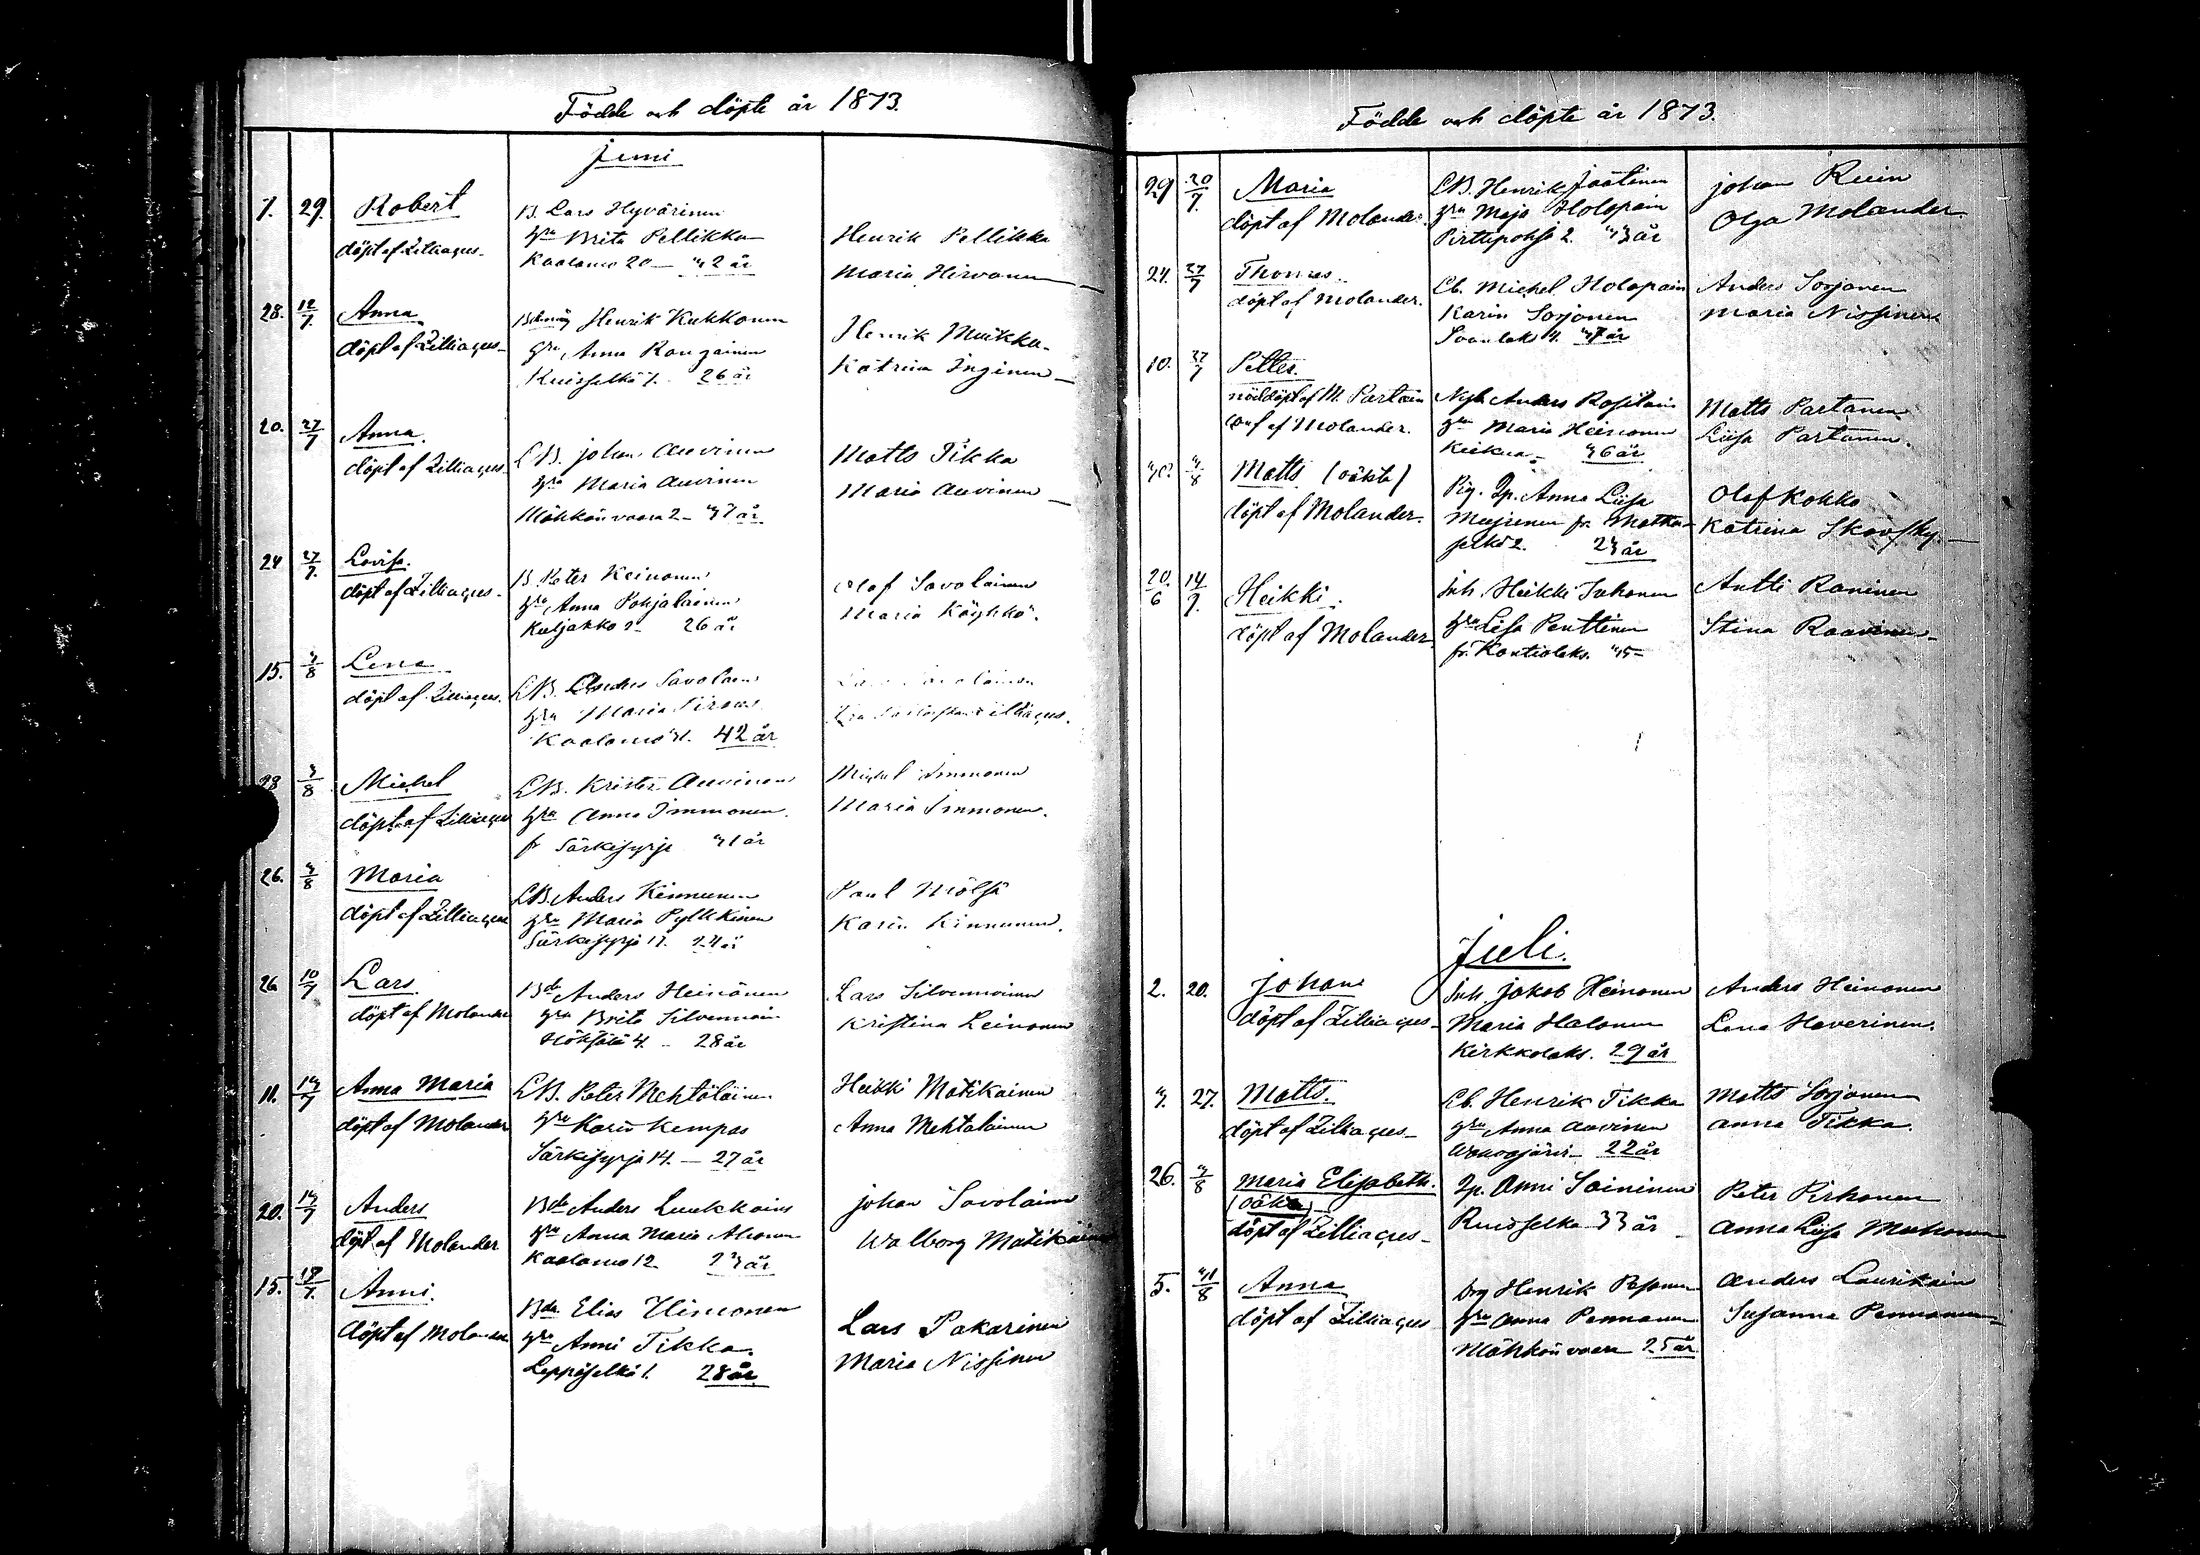 Födde och döpte år 1873.
Juni
7. 29. Robert
döpt af Zilliacus
B. Lars Hyvärinen
hru Brita Pellikka
Kaalamo 20 — 42 år
Henrik Pellikka
Maria Hirvonen
28. 12/7. Anna
döpt af Zilliacus
Henrik Kukkonen
hru Anna
Ruisselkä 1. 26 år
Henrik Muikku
Katrina Inginen
20. 27/7 Anna.
döpt af Zilliacus
LB. Johan Auvinen
hru Maria Auvinen
Möhkönvaara 2 — 37 år
Matts Tikka
Maria Auvinen
24 27/7. Lovisa.
döpt af Zilliacus
B. Peter Keinonen
hru Anna Pohjalainen
26 år
Olof Savolainen
Maria Köykkö.
15. 3/8 Lena
döpt af Zilliacus.
LB. Anders Savolain
hru Maria
Kaalamo 42 år
Zilliacus.
28 3/8 Michel
döpt af Zilliacus
LB. Krister Auvinen
hru Anna Immonen.
fr Särkisyrjä 41 år
Michel Immonen
Maria Immonen.
26. 3/8 Maria
döpt af Zilliacus
LB. Anders Kinnunen
hru Maria Pylkkinen
Särkisyrjä 11. 24 år
Paul Mölsä
Karin Kinnunen.
26 10/7 Lars.
döpt af Molander
Bde Anders Heinonen
hru Brita Silvennoin
4. — 28 år
Lars Silvennoinen
Kristina Leinonen
11. 13/7 Anna Maria
döpt af Molander
LB. Peter Mehtäläinen
hru Karin Kempas
Särkisyrjä 14. — 27 år
Heikki Matikainen
Anna Mehtälainen
20. 13/7 Anders
döpt af Molander
Bde Anders Luukkain
hru Anna Maria Ahonen
Kaalamo 12 23 år
Johan Savolainen
Walborg Matikainen
15. 18/7. Anni.
döpt af Molander
Bde Elias Himonen
hru Anni Tikka.
Leppäselkä 1. 28 år
Lars Pakarinen
Maria Nissinen
Födde och döpte år 1873.
29 20/7. Maria
döpt af Molander.
LB. Henrik Jaatinen
hru Maja Holopain
Pirttipohja 2. 43 år
Johan
Olga Molander.
24. 27/7 Thomas.
döpt af Molander.
Lb. Michel Holopain
Karin Sorjonen
Soanlaks 4. 47 år
Anders Sorjonen
Maria Nissinen
10. 27/7 Petter.
nöddöpt af M. Partain
conf af Molander.
Anders Rossilain
hru Maria Heinonen
46 år
Matts Partanen
Liisa Partanen.
3/8 Matts (oäkta)
döpt af Molander.
Pig. Ip. Anna Liisa
fr. Matka-
selkä 2. 23 år
Olof Kokko
Katrina Skoffsky.
20/6 14/9. Heikki.
döpt af Molander
Inh. Heikki Juhonen
hru Lisa Penttinen
fr. Kontiolaks. 45
Antti Raninen
Stina Raavinen
Juli.
2. 20. Johan
döpt af Zilliacus
Inh. Jakob Heinonen
Maria Halonen
Kirkkolaks. 29 år
Anders Heinonen
Lena Haverinen.
3. 27. Matts.
döpt af Zilliacus
Lb. Henrik Tikka
hru Anna Auvinen
22 år
Matts Sorjonen
Anna Tikka.
26. 3/8 Maria Elisabeth.
(oäkta)
döpt af Zilliacus
Ip. Anni Soininen
Ruosselkä 33 år
Peter Pirhonen
Anna Liisa
5. 31/8 Anna
döpt af Zilliacus
Henrik
hru Anna Pennanen
Möhkönvaara 25 år
Anders Laurikain
Susanna Pennanen